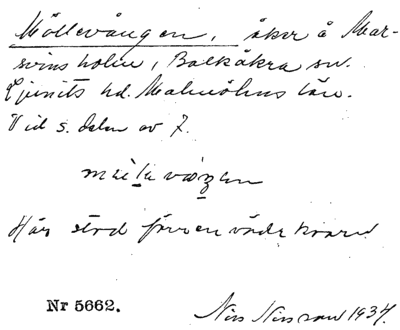 Möllevången, åker å Mar-
svinsholm, Balkåkra sn.
Ljunits hd. Malmöhus län.
Vid s. delen av 7.
Här stod förr en väderkvarn
Nr 5662.
Nils Nilsson 1934.